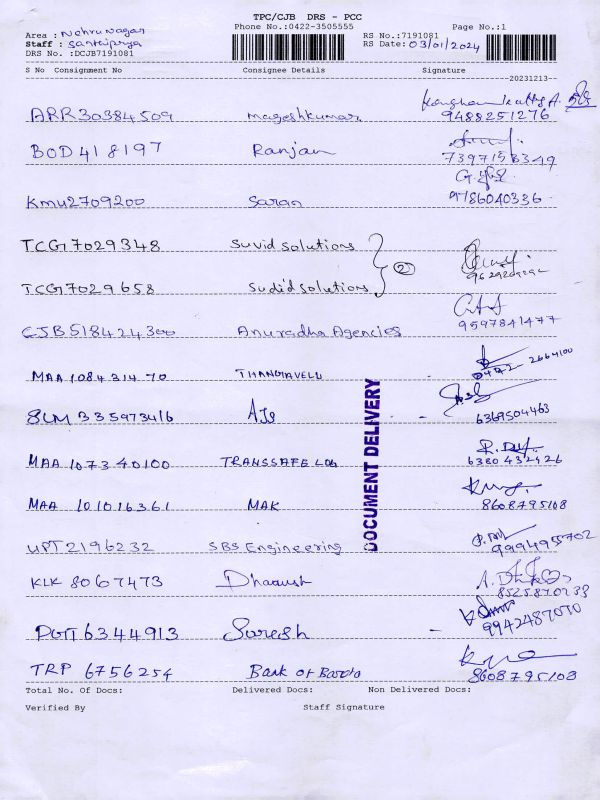 TPC/CJB DRS - PCC
Phone No.:0422-3505555 Page No.:1
Area : Nehru nagar
Staff : Santhipriya
DRS No. :DCJB7191081
RS No.:7191081
RS Date: 03/01/2024
S No Consignment No Consignee Details Signature
20231213
ARR30384509 Mageshkumar 9488251276
BOD418197 Ranjan 7397158349
KMU2709200 Saran 9786040336
TCG17029348 Suvid solutions
TCG17029658 Sudid solutions 2
CJB518424300 Anuradha Agencies 9597841477
MAA 1084314 70 THANGAVELU 0422 2664100
SLM 335973416 AJS 6369504463
MAA 1073 40100 TRANSSAFE LOG 6380 432426
MAA 101016361 MAK 8608795108
UPT2196232 SBS Engineering 9994955702
KLK 8067473 Dhanush 8525870233
PGT6344913 Suresh 9942487070
TRP 6756254 Bank of Baroda 8608795108
DOCUMENT DELIVERY
Total No. Of Docs: Delivered Docs: Non Delivered Docs:
Verified By Staff Signature